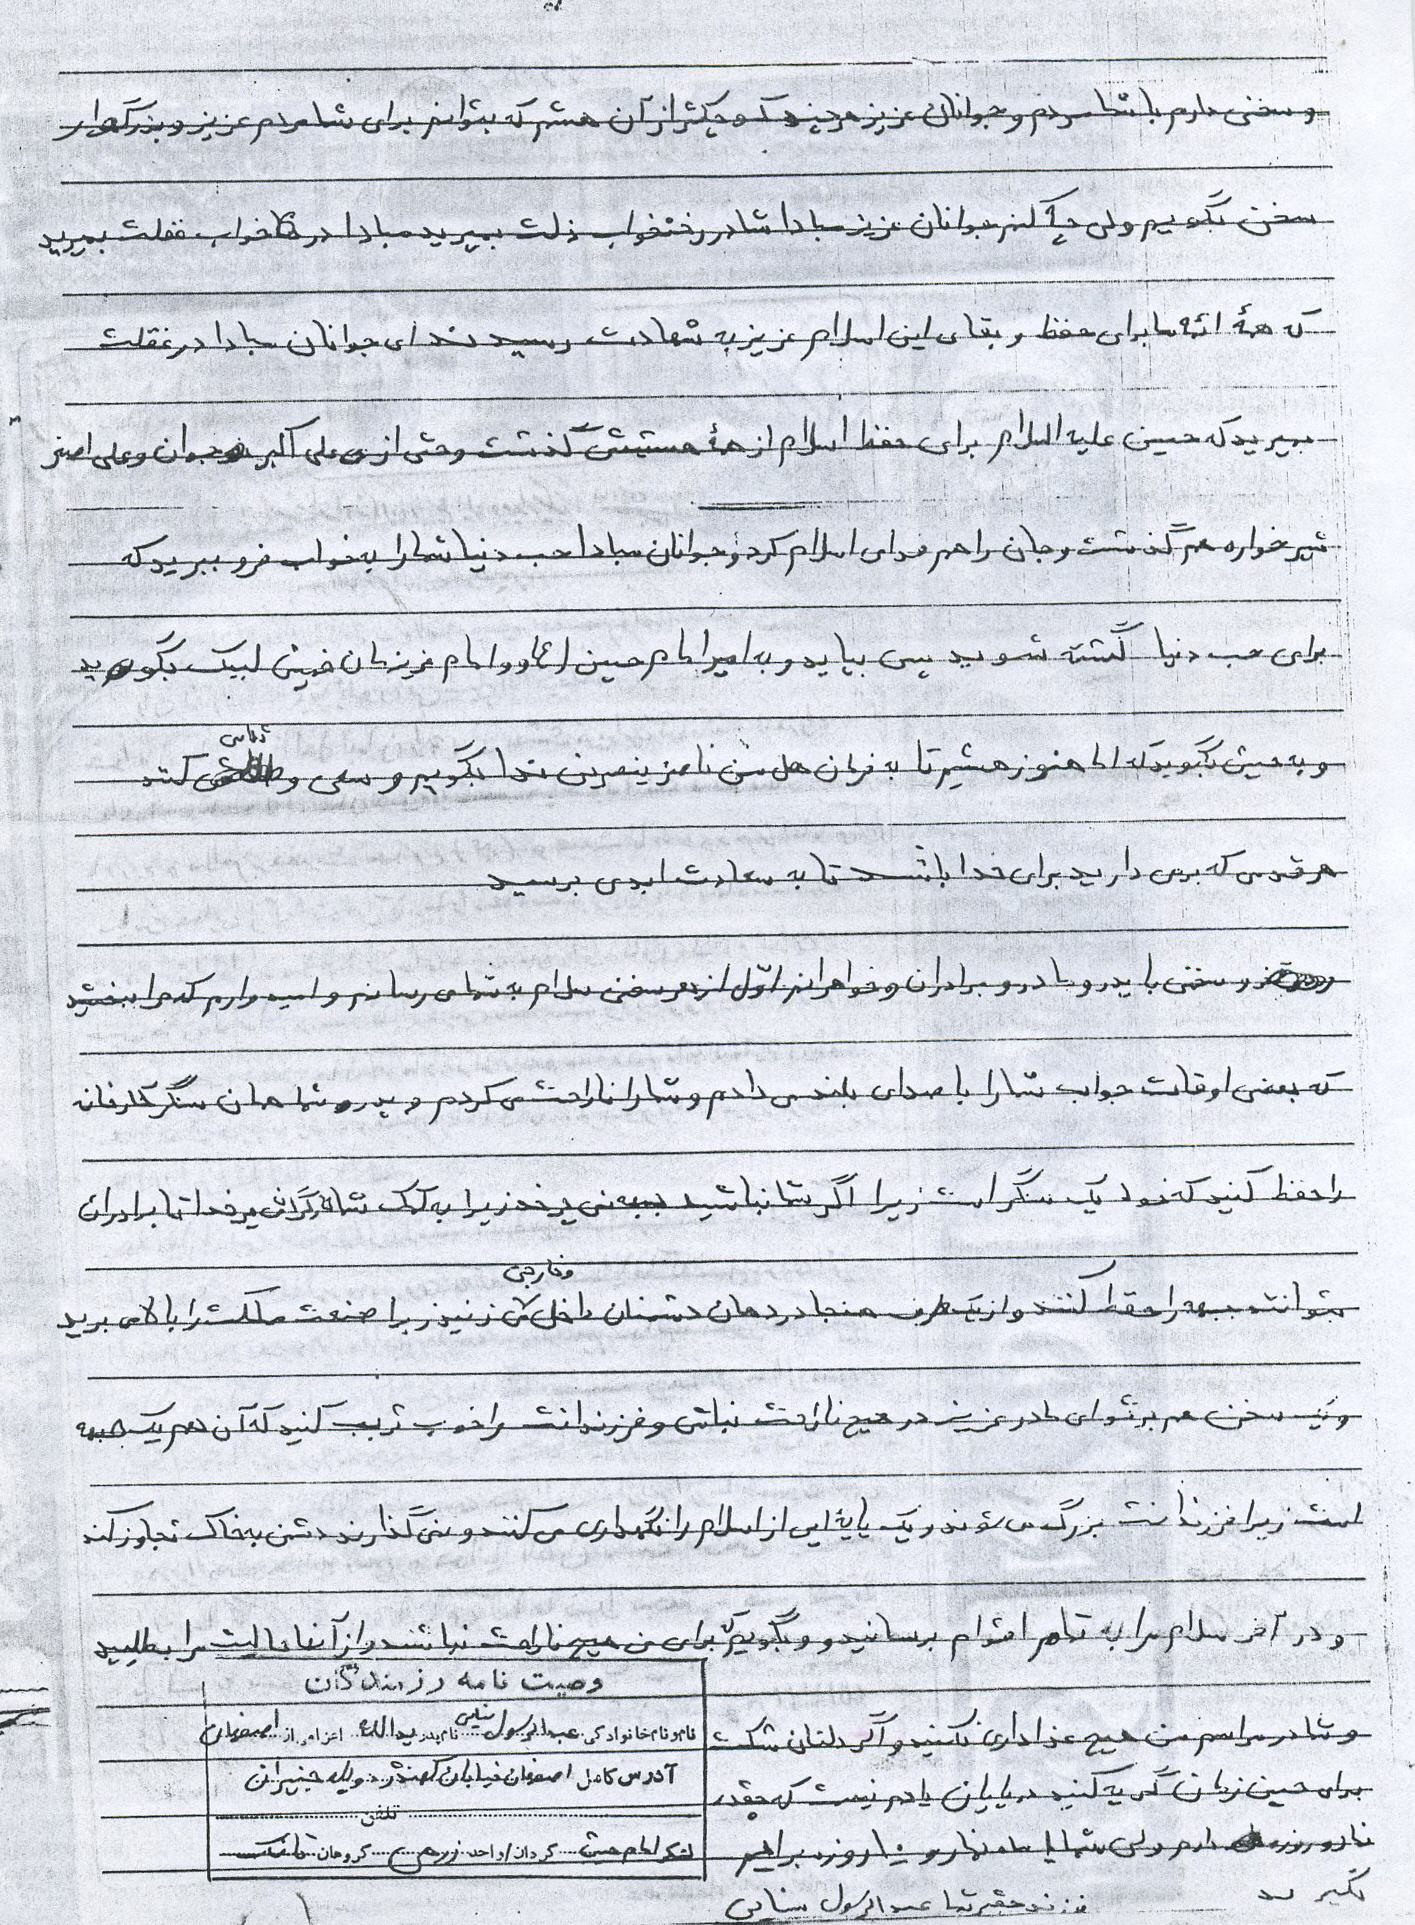 و سخنی دارم با شما مردم و جوانان عزیز هر چند کوچکتر از آن هستم که بتوانم برای شما مردم عزیز و بزرگوار
سخن بگویم ولی چه کنم جوانان عزیز مبادا شما در رختخواب ذلت بمیرید مبادا در خواب غفلت بمیرید
که همهٔ ائمه ما برای حفظ و بقای این اسلام عزیز به شهادت رسیدند ای جوانان مبادا در غفلت
بمیرید که حسین علیه السلام برای حفظ اسلام از همهٔ هستیش گذشت و حتی از علی اکبر جوان و علی اصغر
شیرخواره هم گذشت و جان را هم فدای اسلام کرد و جوانان مبادا حب دنیا شما را به خواب فرو ببرید که
برای حب دنیا کشته شوید پس بیاید و به امیر امام حسین (ع) و امام عزیزمان خمینی لبیک بگوید
و به حسین بگوید که ما هنوز هستیم تا به فرمان هل من ناصر ینصرنی ندا بگویم و سعی و تلاش کنند
هر قدمی که برمی دارید برای خدا باشد تا به سعادت ابدی برسید
و سخنی با پدر و مادر و برادران و خواهرانم اول از هر سخنی سلام به شما می رسانم و امیدوارم که مرا ببخشید
که بعضی اوقات جواب شما را با صدای بلند می دادم و شما را ناراحت می کردم و پدرم شما همان سنگر کارخانه
را حفظ کنید که خود یک سنگر است زیرا اگر شما نباشید جبهه نمی چرخد زیرا به کمک شما کارگران چرخد تا برادران
بتوانند جبهه را حفظ کنند و از یک طرف هم جا در دهان دشمنان داخلی و خارجی می زنید زیرا صنعت مملکت را بالا می برید
و یک سخن هم بر تو ای مادر عزیز در هیچ ناراحت نباشی و فرزندانت را خوب تربیت کنید که آن هم یک جبهه
است زیرا فرزندانت بزرگ می شوند و یک پایه ایی از اسلام را نگهداری می کنند و نمی گذارند دشمن به خاک تجاوز کند
و در آخر سلام مرا به تمام اقوام برسانید و بگوید که برای من هیچ ناراحت نباشند و از آنها حالیت مرا بطلبید
و شما در مراسم من هیچ عزاداری نکنید و اگر دلتان شکست
برای حسین زمان گریه کنید در پایان یادم نیست که چقدر
نماز و روزه دارم ولی شما یک ماه نماز و روزه برایم
بگیرید
فرزند حقیر شما عبدالرسول بنایی
وصیت نامه رزمندگان
نام و نام خانوادگی عبدالرسول بنایی نام پدر یدالله اعزامی از اصفهان
آدرس کامل اصفهان خیابان کهندژ دویله جنیران
تلفن
لشکر امام حسین گردان/واحد زرهی گروهان تانک